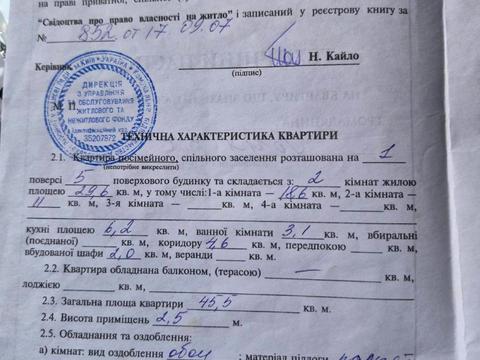 на праві приватної,
"Свідоцтва про право власності на житло" і записаний у реєстрову книгу за
№ 852 от 17 09.07
Керівник Н. Кайло
(підпис)
М. П.
ДИРЕКЦІЯ
З УПРАВЛІННЯ
ТА ОБСЛУГОВУВАННЯ
ЖИТЛОВОГО ТА
НЕЖИТЛОВОГО ФОНДУ
Ідентифікаційний код
35207972
ТЕХНІЧНА ХАРАКТЕРИСТИКА КВАРТИРИ
2.1. Квартира посімейного, спільного заселення розташована на 1
(непотрібне викреслити)
поверсі 5 поверхового будинку та складається з: 2 кімнат жилою
площею 29,6 кв. м, у тому числі: 1-а кімната — 18,6 кв. м, 2-а кімната —
11 кв. м, 3-я кімната — кв. м, 4-а кімната — кв. м,
кухні площею 6,2 кв. м, ванної кімнати 3,1 кв. м, вбиральні
(поєднаної) кв. м, коридору 4,6 кв. м, передпокою — кв. м,
вбудованої шафи 2,0 кв. м, веранди кв. м.
2.2. Квартира обладнана балконом, (терасою) — кв. м,
лоджією кв. м.
2.3. Загальна площа квартири 45,5 кв. м.
2.4. Висота приміщень 2,5 м.
2.5. Обладнання та оздоблення:
а) кімнат: вид оздоблення обои ; матеріал підлоги